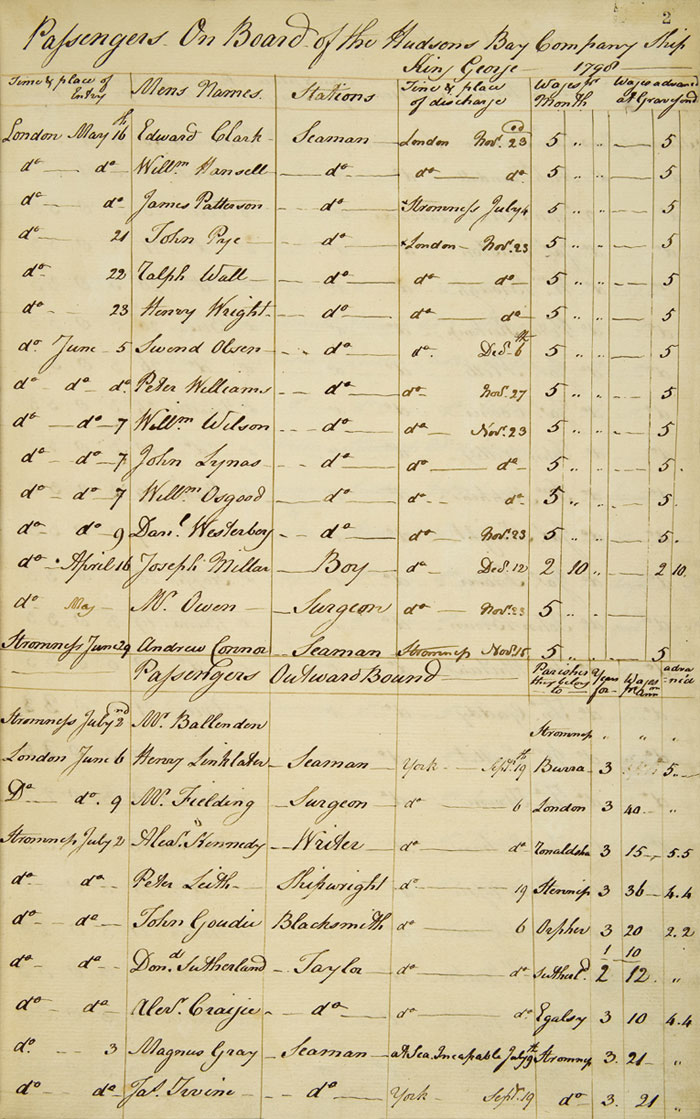 2
Passengers On Board of the Hudsons Bay Company Ship
King George 1798
Time & place of Entry Mens Names Stations Time & place of discharge Wages pr Month Wages advancd at Gravesend
London May 16th Edward Clark Seaman London Novr. 23rd 5 " " 5
do do Willm Hansell do do do 5 " " 5
do do James Patterson do Stromness July 4 5 " " 5
do 21 John Pye do London Novr. 23 5 " " 5
do 22 Ralph Wall do do do 5 " " 5
do 23 Henry Wright do do do 5 " " 5
do June 5 Swend Olsen do do Decr. 6th 5 " " 5
do do do Peter Williams do do Novr. 27 5 " " 5
do do 7 Willm Wilson do do Novr. 23 5 " " 5
do do 7 John Lynas do do do 5 " " 5
do do 7 Willm Osgood do do do 5 " " 5
do do 9 Danl Westerboy do do Novr. 23 5 " " 5
do April 16 Joseph Millar Boy do Decr. 12 2 10 " 2 10
do May Mr Owen Surgeon do Novr. 23 5
Stromness June 29 Andrew Connor Seaman Stromness Novr. 15 5 " " 5
Passengers Outward Bound Parishes they belong to Years for Wages pr ann advancd
Stromness July 2nd Mr. Ballenden Stromness " " "
London June 6 Henry Linklater Seaman York Septr. 19th Burra 3 5
Do do 9 Mr. Fielding Surgeon do 6 London 3 40 "
Stromness July 2 Alexr. Kennedy Writer do do Ronaldsha 3 15 5.5
do do Peter Leith Shipwright do 19 Stennis 3 36 4.4
do do John Goudie Blacksmith do 6 Orpher 3 20 2.2
1 10
do do Dond Sutherland Taylor do do Sutherld 2 12 "
do do Alexr. Craijie do do do Egalsy 3 10 4.4
do 3 Magnus Gray Seaman at Sea Incapable July 9th Stromness 3 21 "
do do Jas. Irvine do York Septr. 19 do 3 21 "